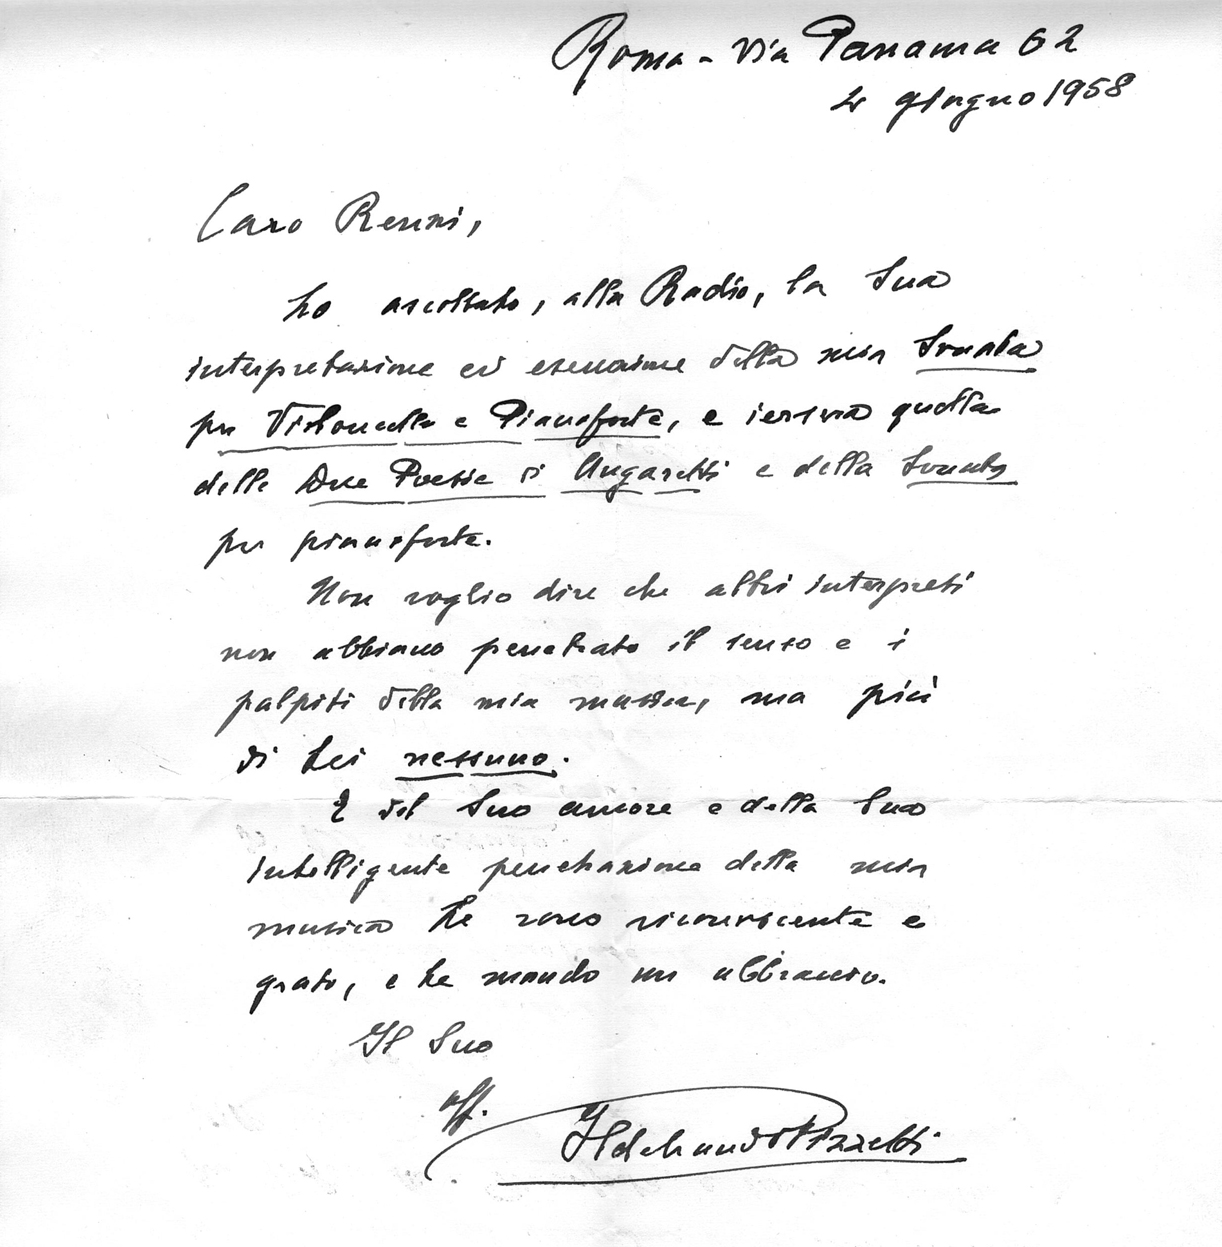 Roma - Via Panama 62
4 giugno 1958
Caro Renzi,
ho ascoltato, alla Radio, la Sua
interpretazione ed esecuzione della mia Sonata
per Violoncello e Pianoforte, e iersera quella
delle Due Poesie di Ungaretti e della Sonata
per pianoforte.
Non voglio dire che altri interpreti
non abbiano penetrato il senso e i
palpiti della mia musica, ma più
di Lei nessuno.
E del Suo amore e della Sua
intelligente penetrazione della mia
musica Le sono riconoscente e
grato, e Le mando un abbraccio.
Il Suo
aff.
Ildebrando Pizzetti